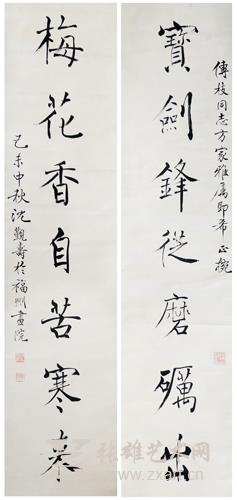 傳枝同志方家雅屬即希 正腕
寶劍鋒從磨礪出
梅花香自苦寒來
己未中秋沈覲壽於福州畫院
张雄艺术网